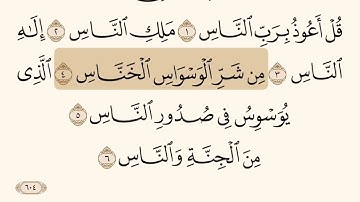 قُلْ أَعُوذُ بِرَبِّ ٱلنَّاسِ ١ مَلِكِ ٱلنَّاسِ ٢ إِلَٰهِ
ٱلنَّاسِ ٣ مِن شَرِّ ٱلْوَسْوَاسِ ٱلْخَنَّاسِ ٤ ٱلَّذِى
يُوَسْوِسُ فِى صُدُورِ ٱلنَّاسِ ٥
مِنَ ٱلْجِنَّةِ وَٱلنَّاسِ ٦
٦٠٤